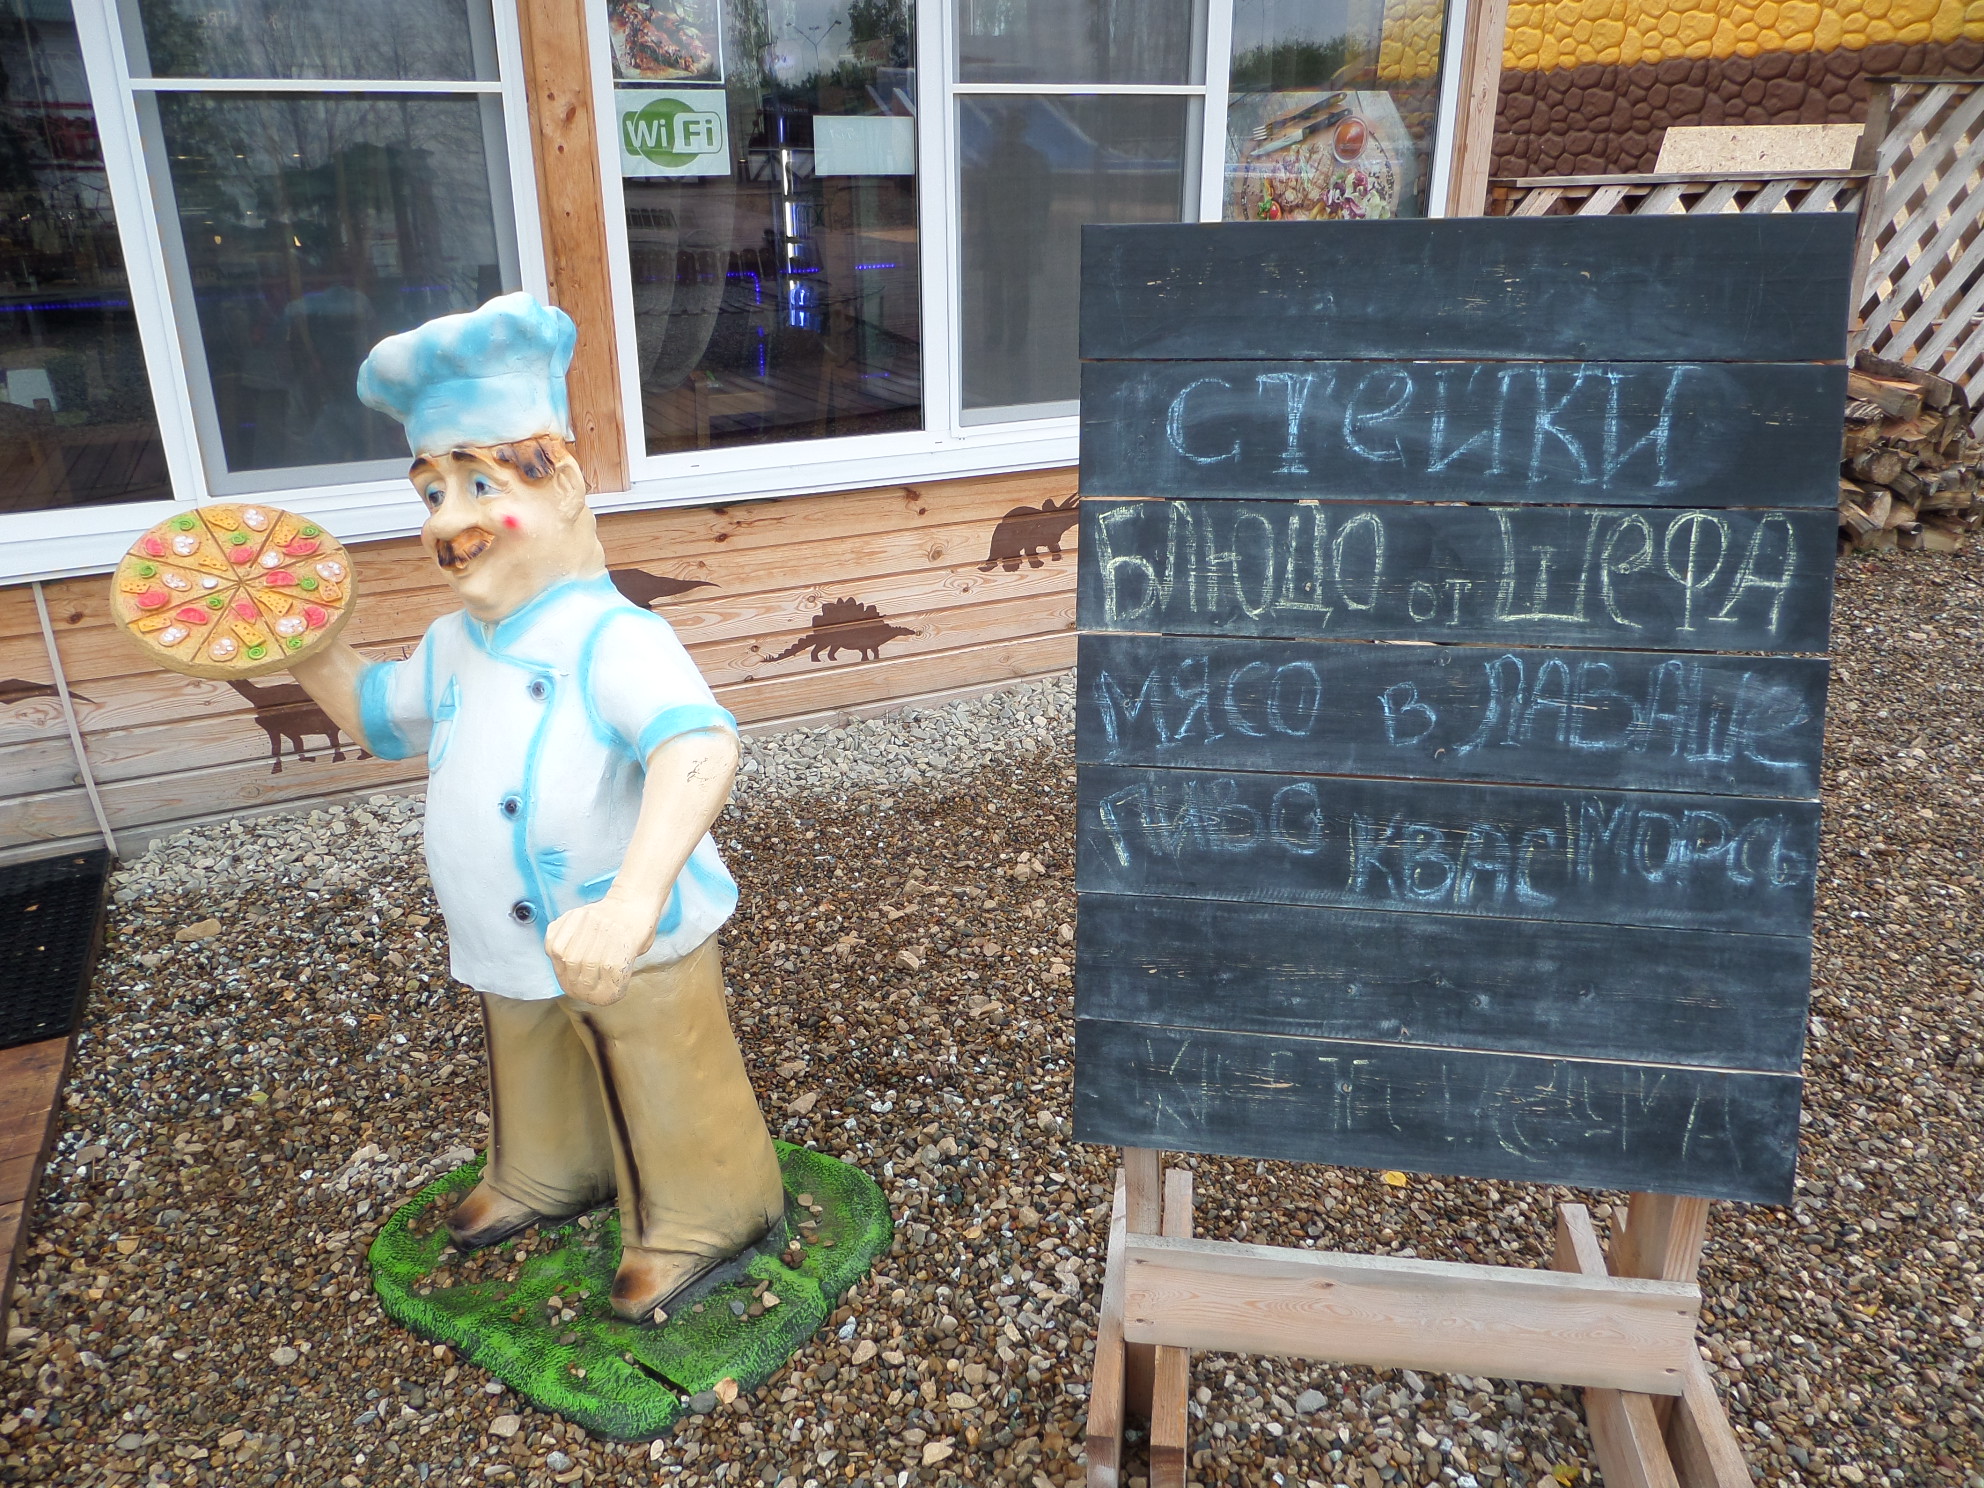 Wi Fi
стейки
Блюдо от шефа
мясо в лаваше
пиво квас морсь